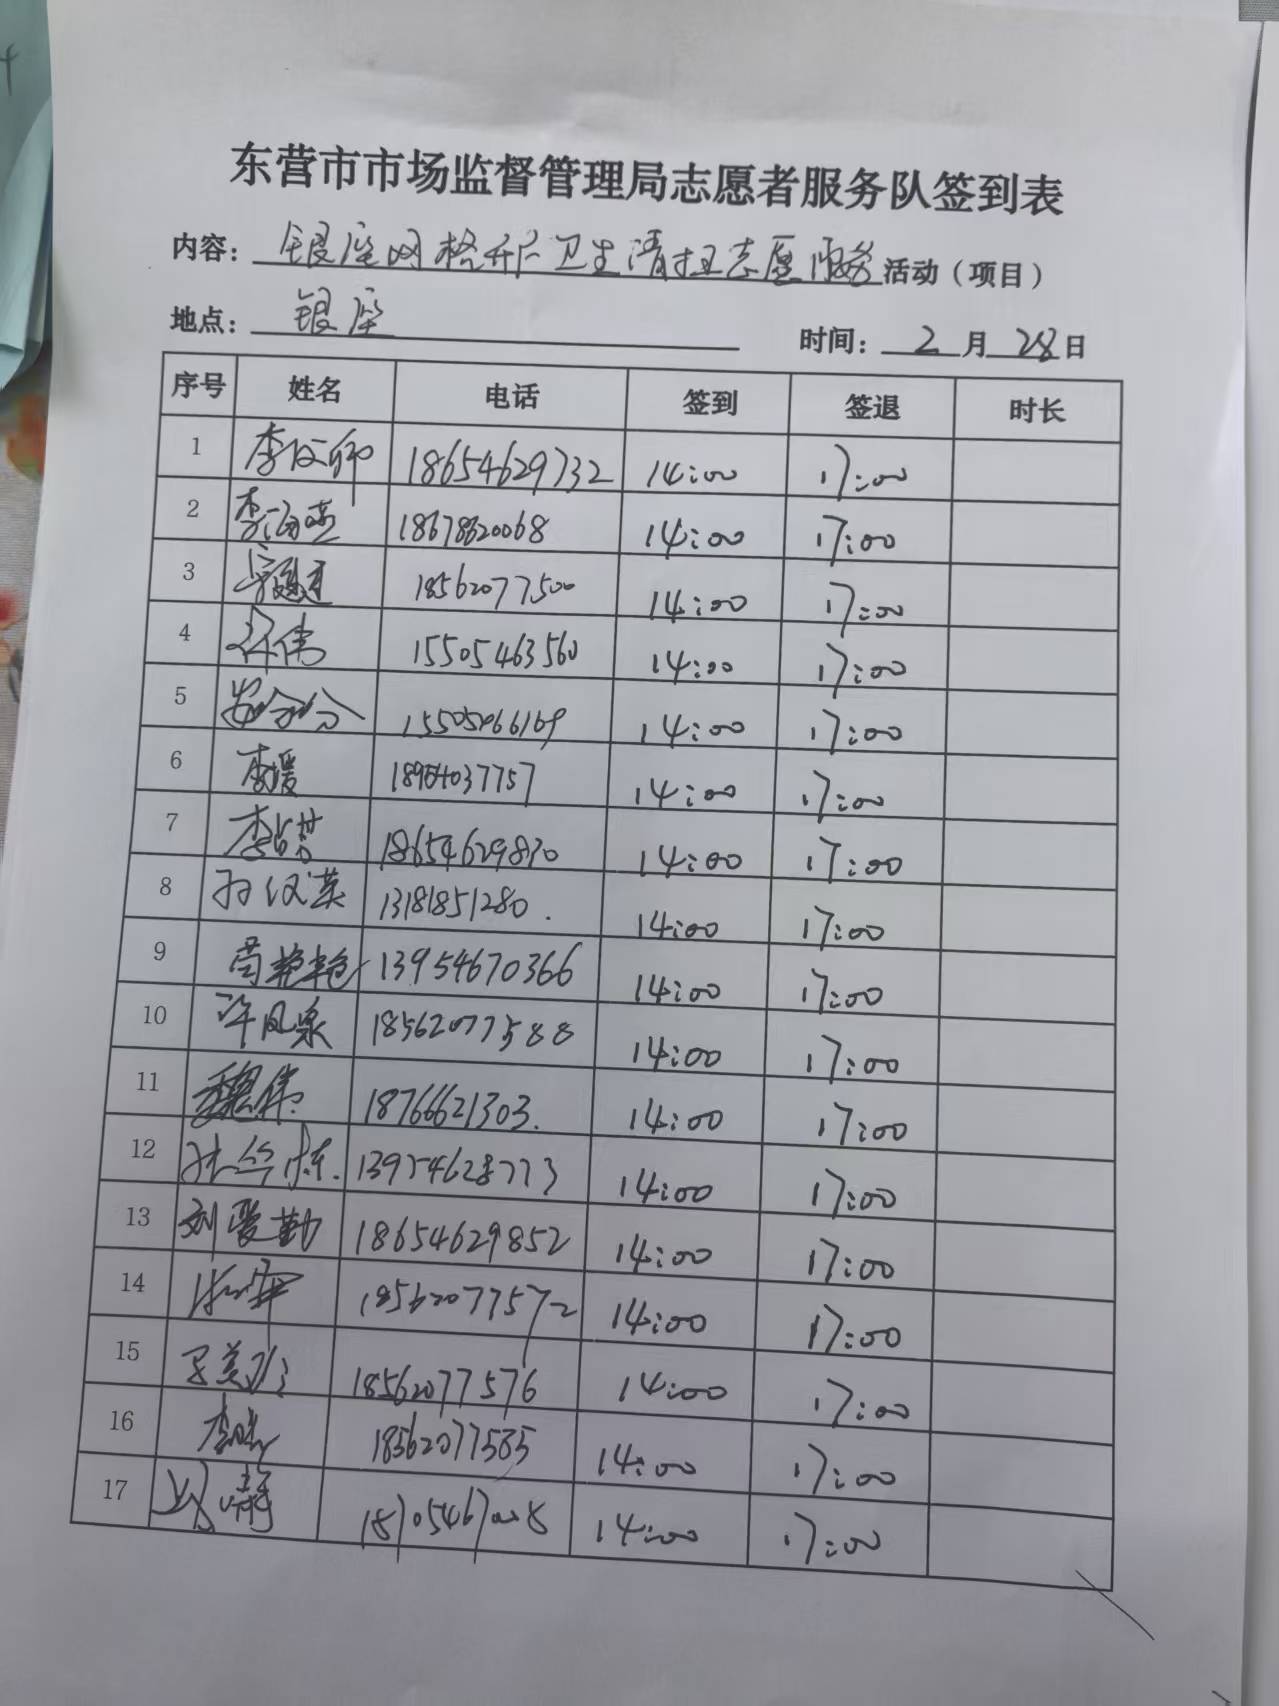 东营市市场监督管理局志愿者服务队签到表
内容：银座网格社区卫生清扫志愿服务活动（项目）
地点：银座 时间：2月28日
序号 姓名 电话 签到 签退 时长
1 18654629732 14:00 17:00
2 18678620068 14:00 17:00
3 18562077500 14:00 17:00
4 15505463560 14:00 17:00
5 14:00 17:00
6 李媛 18954037757 14:00 17:00
7 18654629830 14:00 17:00
8 孙汉英 13181851280. 14:00 17:00
9 苟艳艳 13954670366 14:00 17:00
10 许凤泉 18562077588 14:00 17:00
11 魏伟 18766621303. 14:00 17:00
12 13954628773 14:00 17:00
13 刘爱勤 18654629852 14:00 17:00
14 18562077572 14:00 17:00
15 18562077576 14:00 17:00
16 18562077585 14:00 17:00
17 18705467008 14:00 17:00